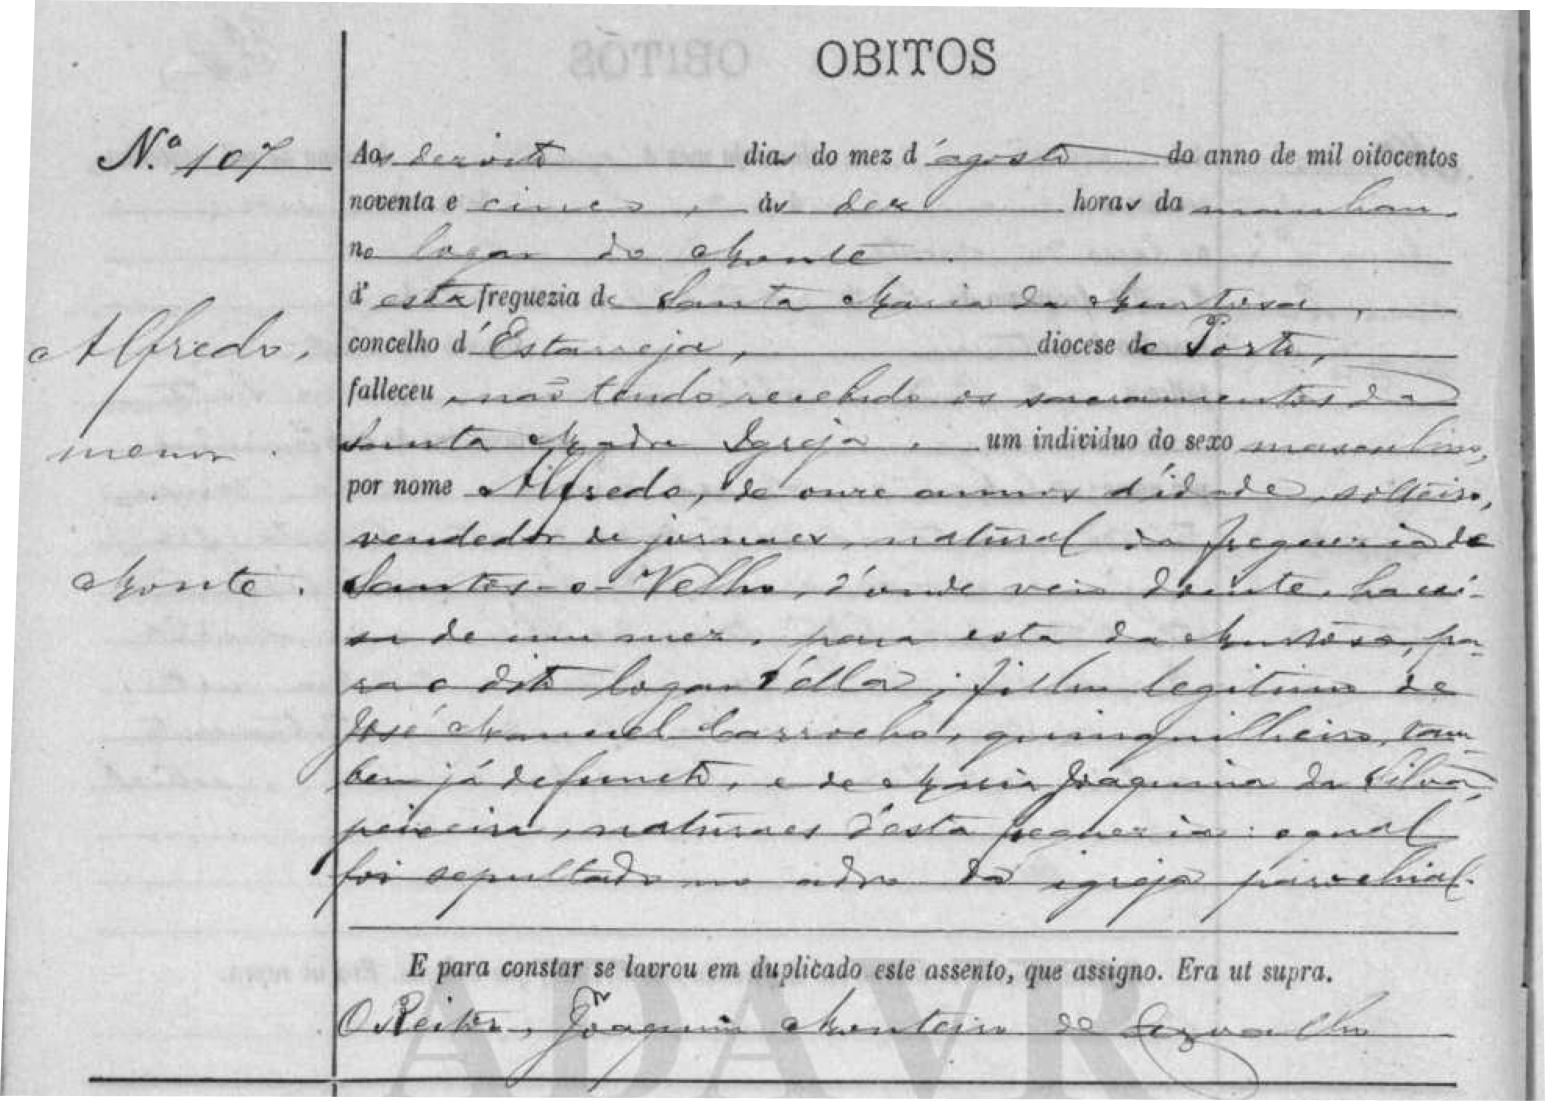 OBITOS
N.º 107
Aos dezoito dias do mez d'agosto do anno de mil oitocentos
noventa e cinco, ás dez horas da manhan,
no logar do Monte
d'esta freguezia de Santa Maria da Murtosa,
concelho d'Estarreja, diocese do Porto,
Alfredo,
falleceu, não tendo recebido os sacramentos da
Santa Madre Igreja, um individuo do sexo masculino,
menor.
por nome Alfredo, de onze annos d'idade, solteiro,
vendedor de jornaes, natural da freguezia de
Monte.
Santos-o-Velho, d'onde veio doente, ha coi-
sa de um mez, para esta da Murtosa, pa-
ra o dito logar d'ella; filho legitimo de
José Manuel Carrocho, quinquilheiro, tam-
bem já defuncto, e de Maria Joaquina da Silva,
peixeira, naturaes d'esta freguezia: o qual
foi sepultado no adro da igreja parochial.
E para constar se lavrou em duplicado este assento, que assigno. Era ut supra.
O Reitor, Joaquim Monteiro de
ADAVR